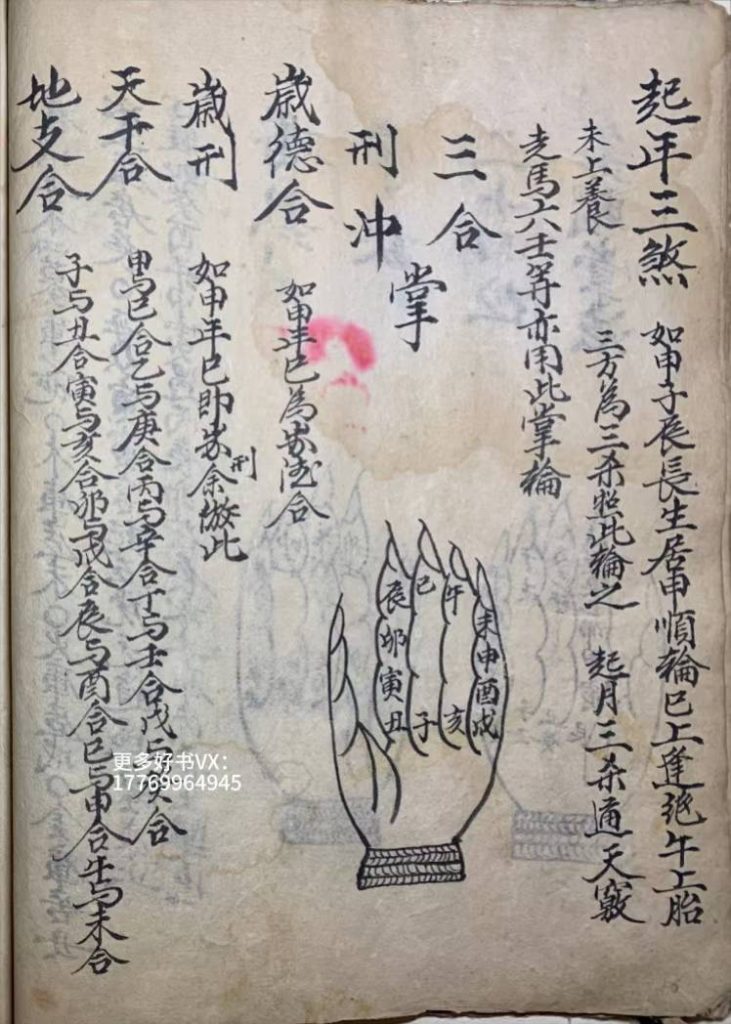 起年三煞 如申子辰長生居申順輪巳上逢绝午上胎
未上養 三方為三杀照此輪之 起月三杀通天竅
走馬六壬等亦用此掌輪
三合
刑沖
掌
歲德合 如甲年巳為岁德合
歲刑 如甲年巳即岁刑余倣此
天干合 甲与巳合乙与庚合丙与辛合丁与壬合戊与癸合
地支合 子与丑合寅与亥合卯与戌合辰与酉合巳与申合午与未合
辰卯寅丑
巳子
午亥
未申酉戌
更多好书VX:
17769964945